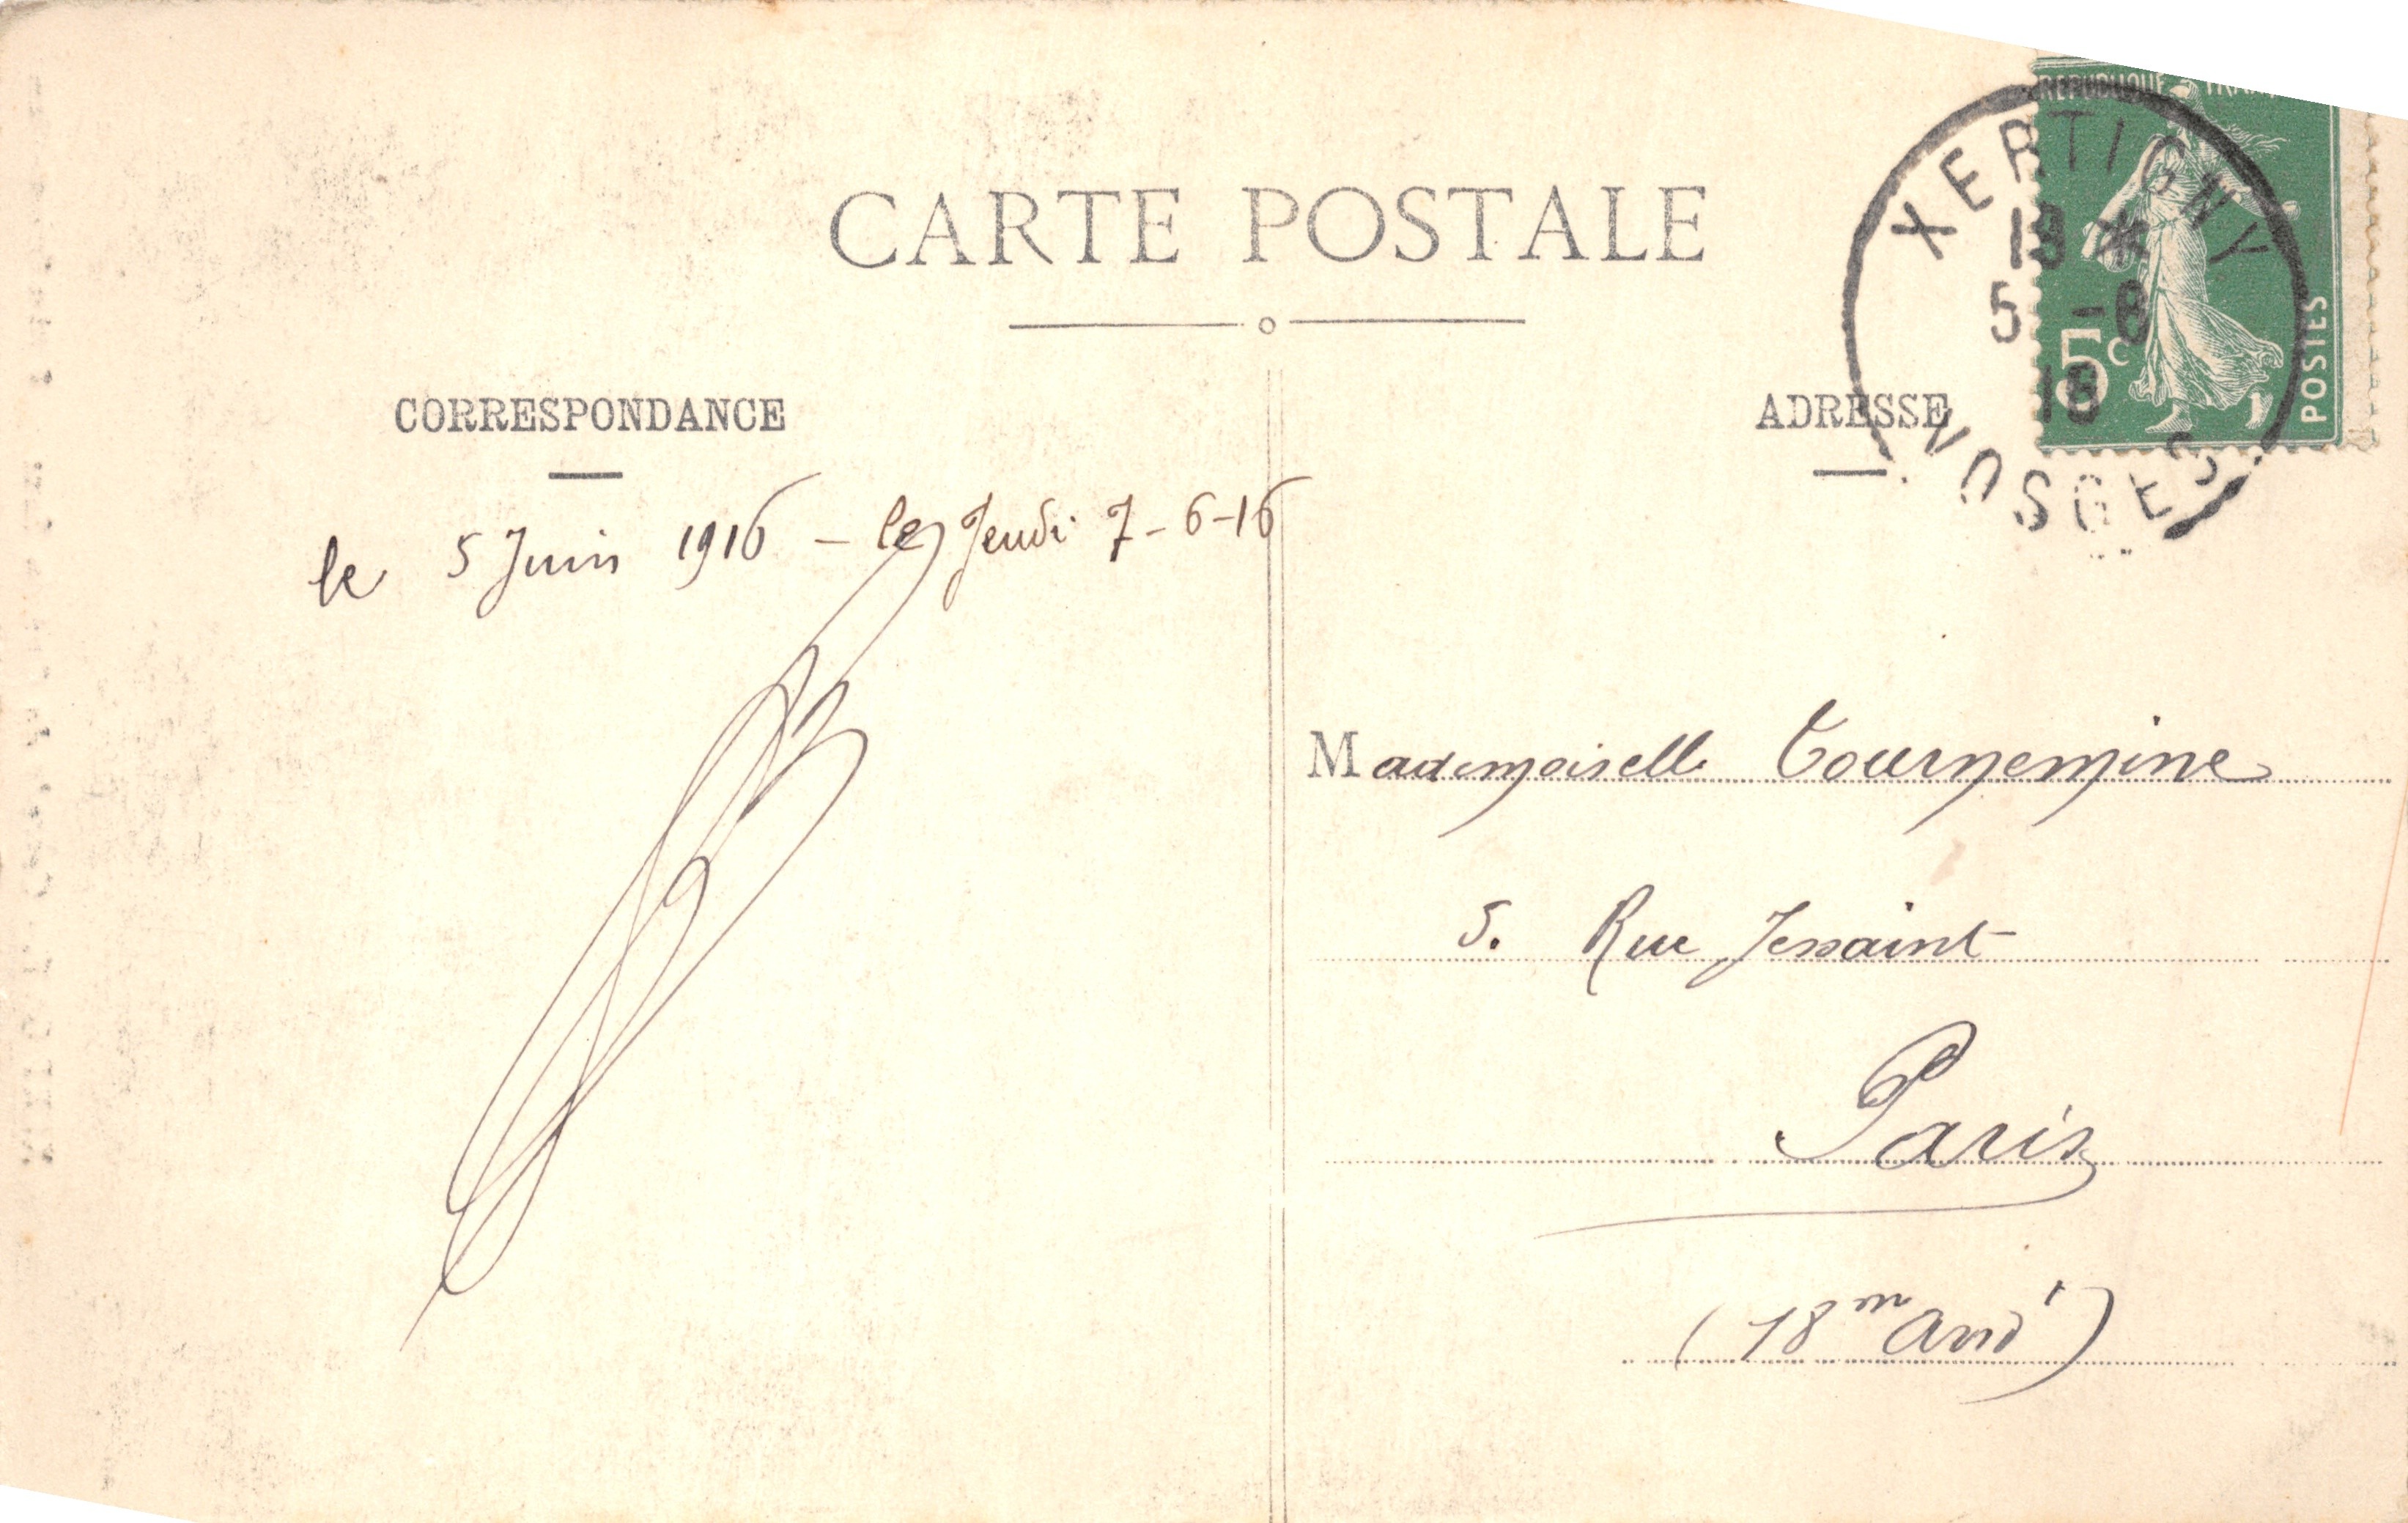 CARTE POSTALE
CORRESPONDANCE
ADRESSE
REPUBLIQUE
5c
POSTES
XERTIGNY
5 -6
VOSGES
le 5 Juin 1916 – le Jeudi 7-6-16
Mademoiselle Tournemine
5. Rue Jessaint
Paris
(18me Arrt)